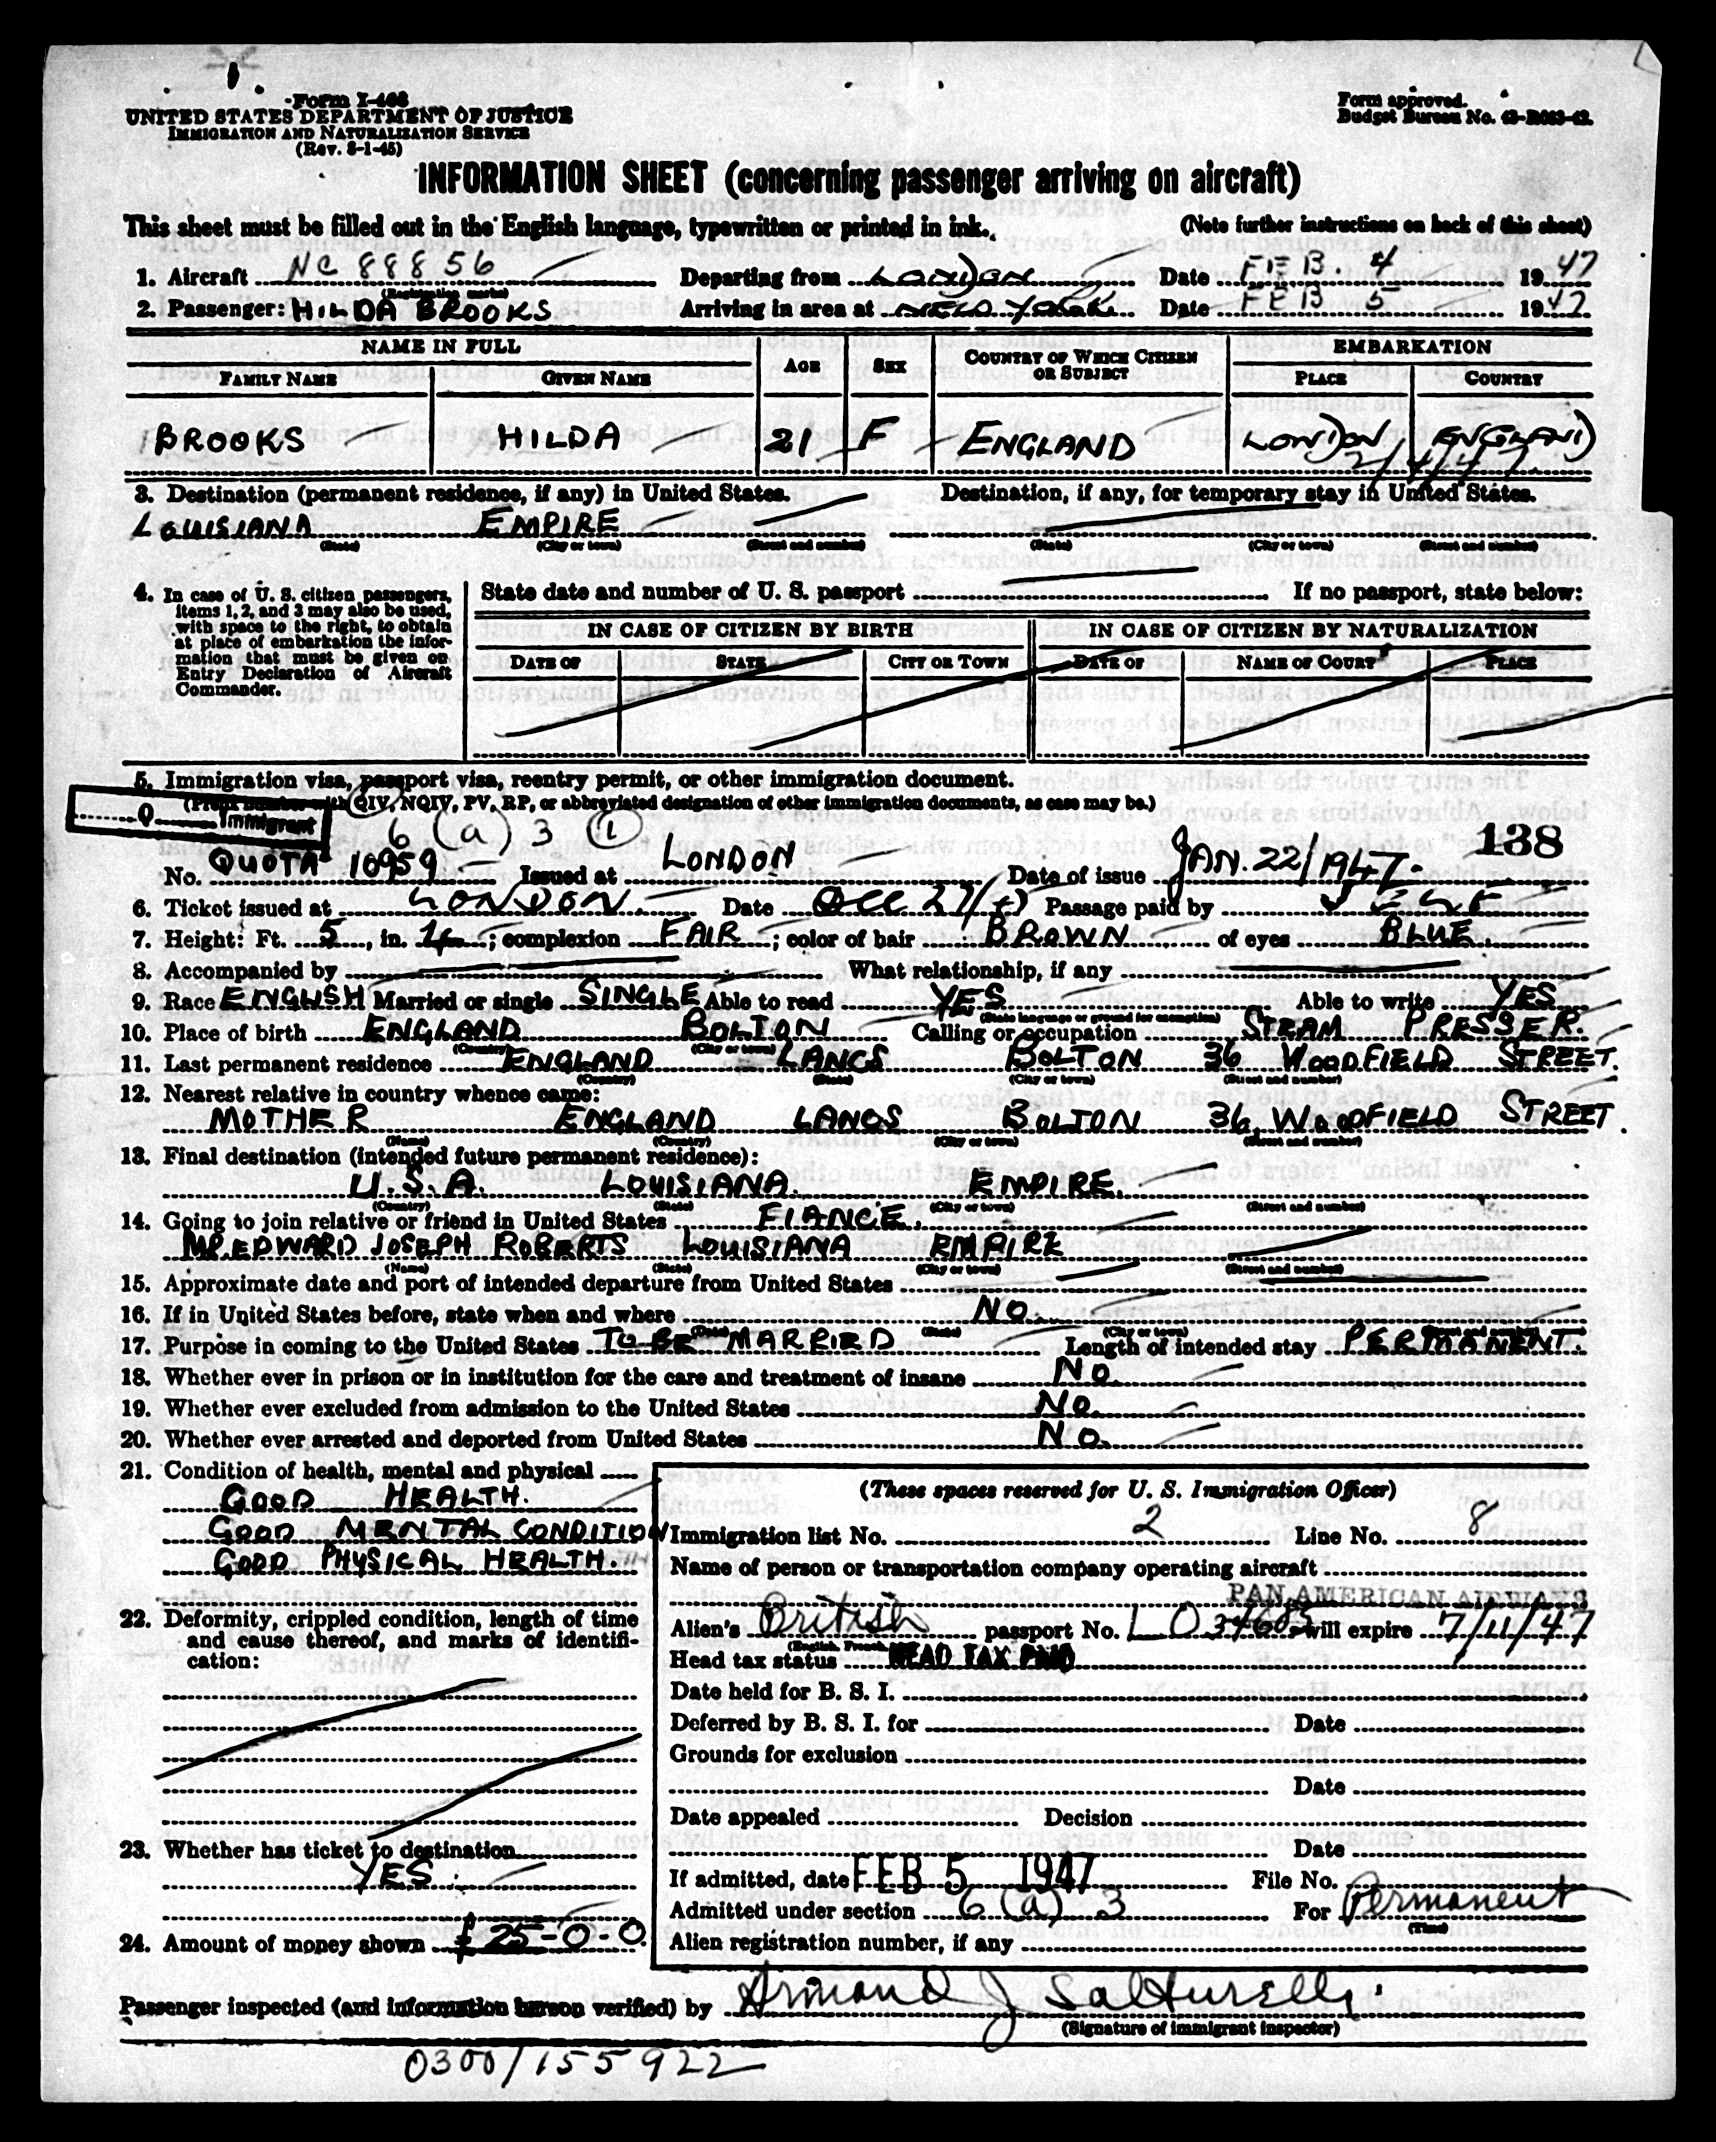 Form I-466
UNITED STATES DEPARTMENT OF JUSTICE
IMMIGRATION AND NATURALIZATION SERVICE
(Rev. 8-1-45)
Form approved.
Budget Bureau No.
INFORMATION SHEET (concerning passenger arriving on aircraft)
This sheet must be filled out in the English language, typewritten or printed in ink.
(Note further instructions on back of this sheet)
1. Aircraft NC 88856 Departing from LONDON Date FEB. 4 1947
(Registration marks)
2. Passenger: HILDA BROOKS Arriving in area at NEW YORK Date FEB 5 1947
NAME IN FULL AGE SEX COUNTRY OF WHICH CITIZEN OR SUBJECT EMBARKATION
FAMILY NAME GIVEN NAME PLACE COUNTRY
BROOKS HILDA 21 F ENGLAND LONDON ENGLAND
2/4/47.
3. Destination (permanent residence, if any) in United States. Destination, if any, for temporary stay in United States.
LOUISIANA EMPIRE
(State) (City or town) (Street and number) (State) (City or town) (Street and number)
4. In case of U. S. citizen passengers, items 1, 2, and 3 may also be used, with space to the right, to obtain at place of embarkation the information that must be given on Entry Declaration of Aircraft Commander.
State date and number of U. S. passport If no passport, state below:
IN CASE OF CITIZEN BY BIRTH IN CASE OF CITIZEN BY NATURALIZATION
DATE OF STATE CITY OR TOWN DATE OF NAME OF COURT PLACE
5. Immigration visa, passport visa, reentry permit, or other immigration document.
(Print number with QIV, NQIV, PV, RP, or abbreviated designation of other immigration documents, as case may be.)
Q Immigrant
6 (a) 3 (1)
138
No. QUOTA 10959 Issued at LONDON Date of issue JAN. 22/1947.
6. Ticket issued at LONDON. Date Passage paid by SELF
7. Height: Ft. 5, in. 4; complexion FAIR; color of hair BROWN of eyes BLUE.
8. Accompanied by What relationship, if any
9. Race ENGLISH Married or single SINGLE Able to read YES Able to write YES
(State language or ground for exemption)
10. Place of birth ENGLAND BOLTON Calling or occupation STEAM PRESSER.
(Country) (City or town)
11. Last permanent residence ENGLAND LANCS BOLTON 36 WOODFIELD STREET.
(Country) (State) (City or town) (Street and number)
12. Nearest relative in country whence came:
MOTHER ENGLAND LANCS BOLTON 36 WOODFIELD STREET.
(Name) (Country) (City or town) (Street and number)
13. Final destination (intended future permanent residence):
U.S.A. LOUISIANA. EMPIRE.
(Country) (State) (City or town) (Street and number)
14. Going to join relative or friend in United States FIANCE.
MR. EDWARD JOSEPH ROBERTS LOUISIANA EMPIRE
(Name) (State) (City or town) (Street and number)
15. Approximate date and port of intended departure from United States
16. If in United States before, state when and where NO.
(Date) (State) (City or town) (Street and number)
17. Purpose in coming to the United States TO BE MARRIED Length of intended stay PERMANENT.
18. Whether ever in prison or in institution for the care and treatment of insane NO
19. Whether ever excluded from admission to the United States NO.
20. Whether ever arrested and deported from United States NO.
21. Condition of health, mental and physical
GOOD HEALTH.
GOOD MENTAL CONDITION
GOOD PHYSICAL HEALTH.
22. Deformity, crippled condition, length of time and cause thereof, and marks of identification:
23. Whether has ticket to destination
YES.
24. Amount of money shown £ 25-0-0.
(These spaces reserved for U. S. Immigration Officer)
Immigration list No. 2 Line No. 8
Name of person or transportation company operating aircraft
PAN AMERICAN AIRWAYS
Alien's British passport No. L 034685 will expire 7/11/47
Head tax status HEAD TAX PAID
Date held for B. S. I.
Deferred by B. S. I. for Date
Grounds for exclusion
Date
Date appealed Decision
Date
If admitted, date FEB 5 1947 File No.
Admitted under section 6 (a) 3 For Permanent
(Time)
Alien registration number, if any
Passenger inspected (and information hereon verified) by Armand J
(Signature of immigrant inspector)
0300/155922